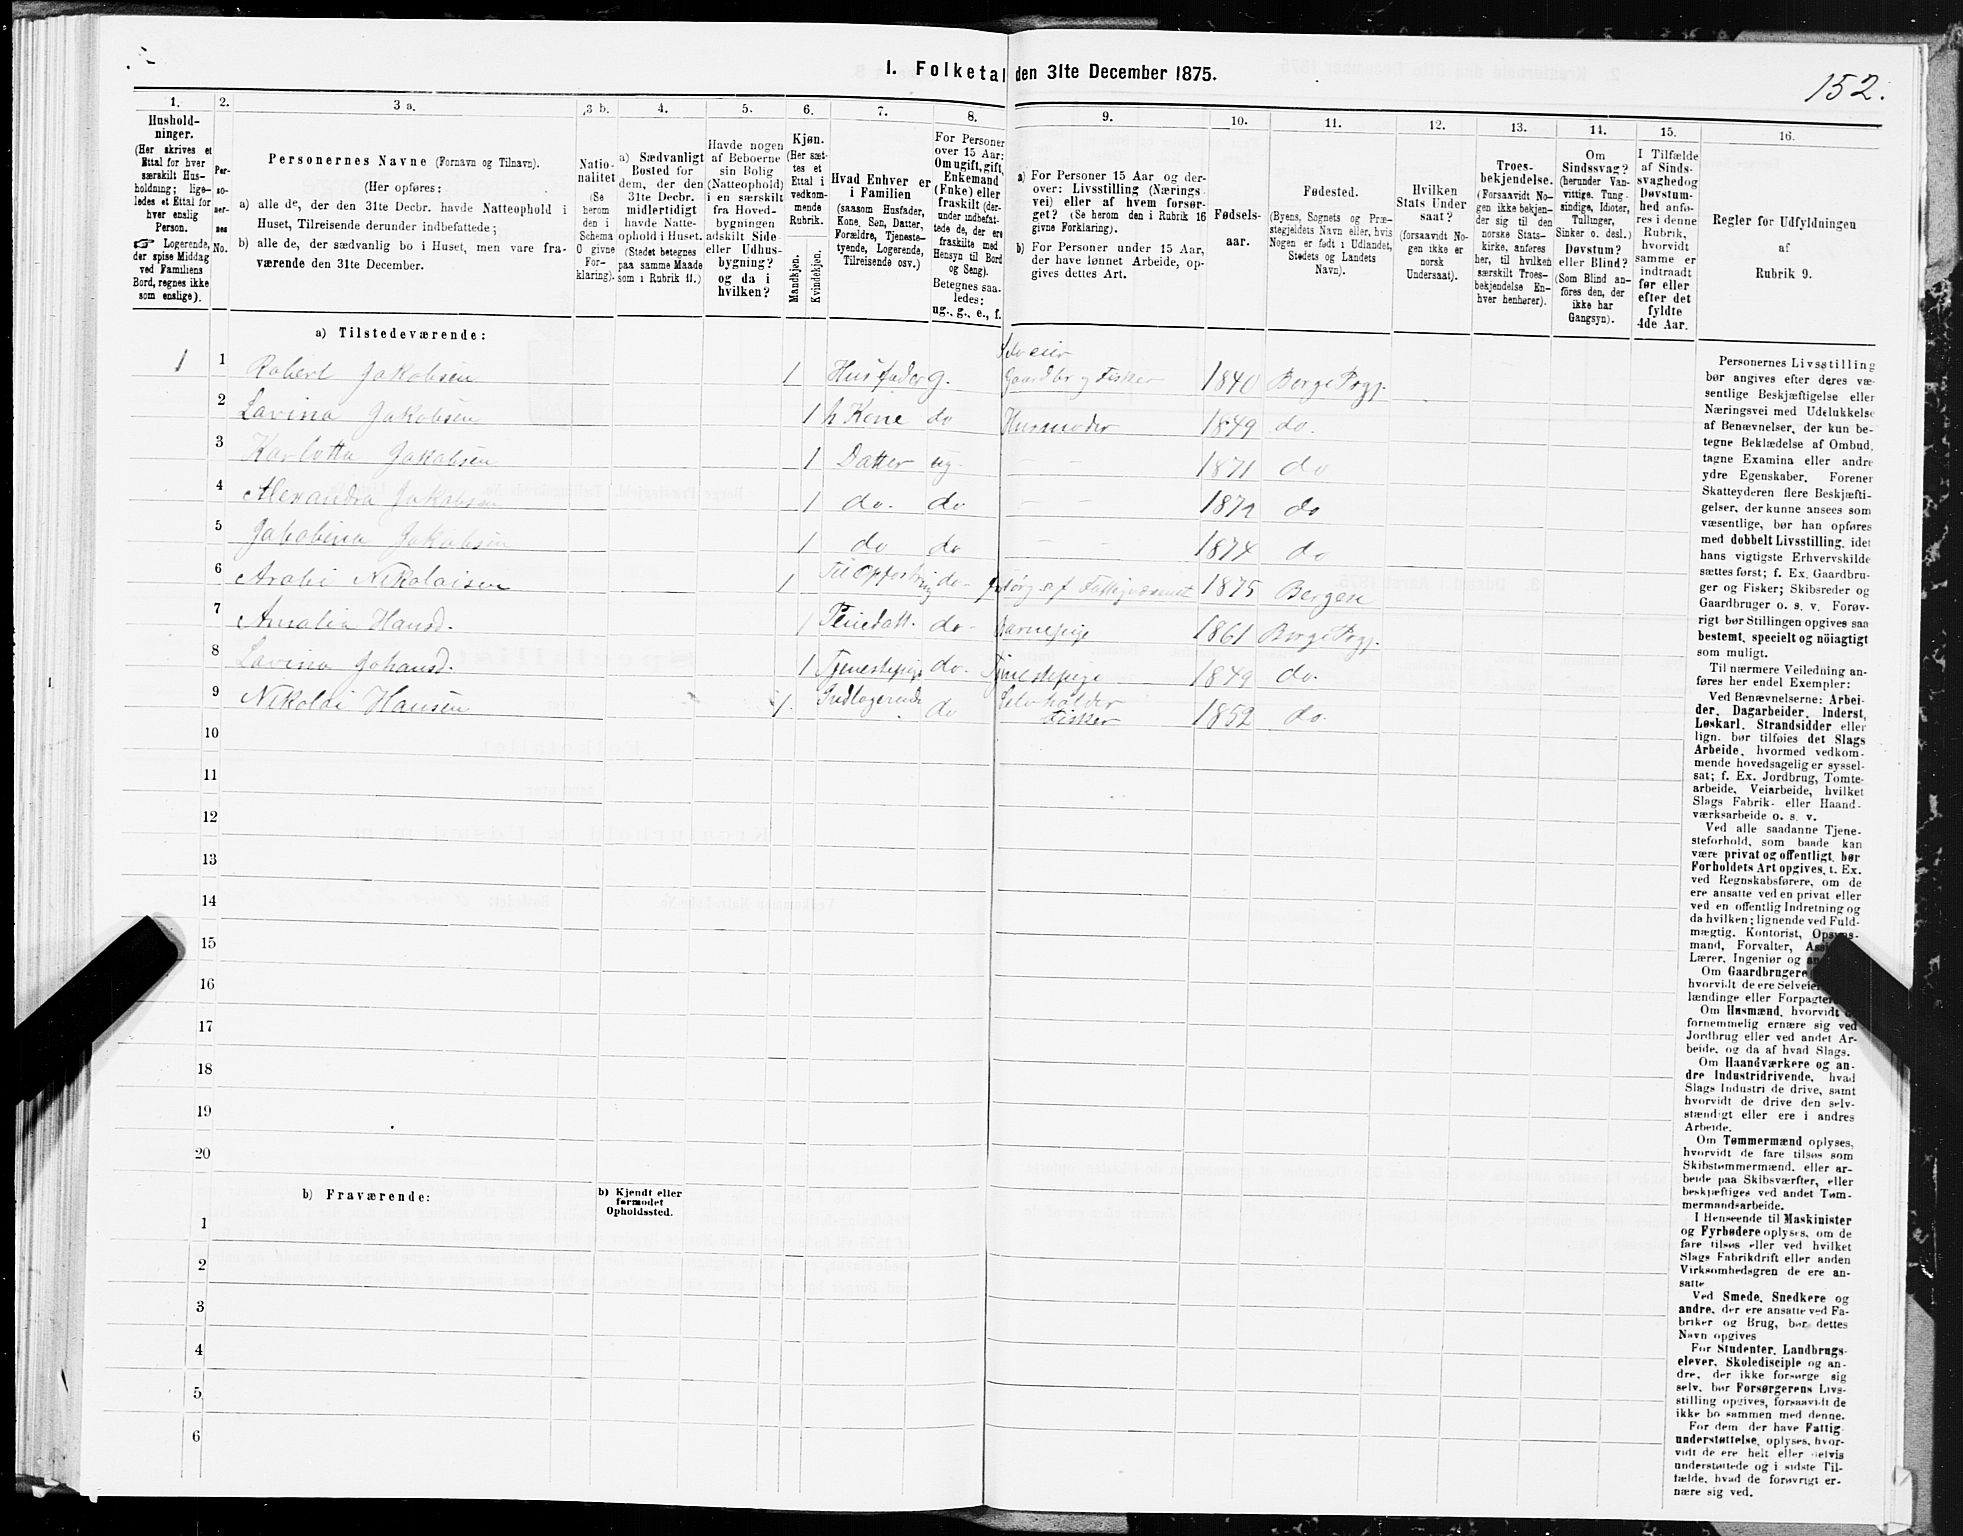 I. Folketal den 31te December 1875.
152.
1.
Hushold-
ninger.
(Her skrives et
Ettal for hver
særskilt Hus-
holdning; lige-
ledes et Ettal for
hver enslig
Person.
Logerende,
der spise Middag
ved Familiens
Bord, regnes ikke
som enslige).
2.
Per-
so-
ner-
nes
No.
3 a.
Personernes Navne (Fornavn og Tilnavn).
(Her opføres:
a) alle de, der den 31te Decbr. havde Natteophold i
Huset, Tilreisende derunder indbefattede;
b) alle de, der sædvanlig bo i Huset, men vare fra-
værende den 31te December.
3 b.
Natio-
nalitet
(Se
herom
den i
Schema
O givne
For-
klaring).
4.
a) Sædvanligt
Bosted for
dem, der den
31te Decbr.
midlertidigt
havde Natte-
ophold i Huset.
(Stedet betegnes
paa samme Maade
som i Rubrik 11.)
5.
Havde nogen
af Beboerne
sin Bolig
(Natteophold)
i en særskilt
fra Hoved-
bygningen
adskilt Side-
eller Udhus-
bygning?
og da i
hvilken?
6.
Kjøn.
(Her sæt-
tes et
Ettal i
vedkom-
mende
Rubrik.
Mandkjøn.
Kvindekjøn.
7.
Hvad Enhver er
i Familien
(saasom Husfader,
Kone, Søn, Datter,
Forældre, Tjeneste-
tyende, Logerende,
Tilreisende osv.)
8.
For Personer
over 15 Aar:
Om ugift, gift,
Enkemand
(Enke) eller
fraskilt (der-
under indbefat-
tede de, der ere
fraskilte med
Hensyn til Bord
og Seng).
Betegnes saa-
ledes:
ug., g., e., f.
9.
a) For Personer 15 Aar og der-
over: Livsstilling (Nærings-
vei) eller af hvem forsør-
get? (Se herom den i Rubrik 16
givne Forklaring).
b) For Personer under 15 Aar,
der have lønnet Arbeide, op-
gives dettes Art.
10.
Fødsels-
aar.
11.
Fødested.
(Byens, Sognets og Præ-
stegjeldets Navn eller, hvis
Nogen er født i Udlandet,
Stedets og Landets
Navn).
12.
Hvilken
Stats Under
saat?
(forsaavidt No-
gen ikke er
norsk
Undersaat).
13.
Troes-
bekjendelse.
(Forsaavidt No-
gen ikke bekjen-
der sig til den
norske Stats-
kirke, anføres
her, til hvilken
særskilt Troes-
bekjendelse En-
hver henhører).
14.
Om
Sindssvag?
(herunder Van-
vittige, Tung-
sindige, Idioter,
Tullinger,
Sinker o. desl.)
Døvstum?
eller Blind?
(Som Blind an-
føres den, der
ikke har
Gangsyn).
15.
I Tilfælde
af Sinds-
svaghed og
Døvstum-
hed anfø-
res i denne
Rubrik,
hvorvidt
samme er
indtraadt
før eller
efter det
fyldte
4de Aar.
16.
Regler for Udfyldningen
af
Rubrik 9.
a) Tilstedeværende:
1 1 Robert Jakobsen 1 Husfader g. Selveier Gaardbr og Fisker 1840 Borge Prgj.
2 Lavina Jakobsen 1 h Kone do Husmoder 1849 do.
3 Karlotta Jakobsen 1 Datter ug. - - 1871 do
4 Alexandra Jakobsen 1 do. do - - do
5 Jakobina Jakobsen 1 do do - - 1874 do
6 Nikolaisen 1 Til Opfostring do. forsørg. af Fattigvæsenet 1875 Bergen
7 Amalia Hansd. 1 do. Barnepige 1861 Borge Prgj.
8 Lavina Johansd. 1 Tjenestepige do. Tjenestepige 1849 do.
9 Nikolai Hansen 1. Indlogerende do Selvholder Fisker 1852 do.
10
11
12
13
14
15
16
17
18
19
20
b) Fraværende:
b) Kjendt eller
formodet
Opholdssted.
1
2
3
4
5
6
Personernes Livsstilling
bør angives efter deres væ-
sentlige Beskjæftigelse eller
Næringsvei med Udelukkelse
af Benævnelser, der kun be-
tegne Beklædelse af Ombud,
tagne Examina eller andre
ydre Egenskaber. Forener
Skatteyderen flere Beskjæfti-
gelser, der kunne ansees som
væsentlige, bør han opføres
med dobbelt Livsstilling, idet
hans vigtigste Erhvervskilde
sættes først; f. Ex. Gaardbru-
ger og Fisker; Skibsreder og
Gaardbruger o. s. v. Forøv-
rigt bør Stillingen opgives saa
bestemt, specielt og nöiagtigt
som muligt.
Til nærmere Veiledning an-
føres her endel Exempler:
Ved Benævnelserne: Arbei-
der, Dagarbeider, Inderst,
Løskarl, Strandsidder eller
lign. bør tilføies det Slags
Arbeide, hvormed vedkom-
mende hovedsagelig er syssel-
sat; f. Ex. Jordbrug, Tomte-
arbeide, Veiarbeide, hvilket
Slags Fabrik- eller Haand-
værksarbeide o. s. v.
Ved alle saadanne Tjene-
steforhold, som baade kan
være privat og offentligt, bør
Forholdets Art opgives, t. Ex.
ved Regnskabsførere, om de
ere ansatte ved en privat eller
ved en offentlig Indretning og
da hvilken; lignende ved Fuld-
mægtig, Kontorist, Opsyns-
mand, Forvalter,
Lærer, Ingeniør og
Om Gaardbrugere
hvorvidt de ere
lændinge eller
Om Husmænd, hvorvidt
fornemmelig ernære sig ved
Jordbrug eller ved andet Ar-
beide, og da af hvad Slags.
Om Haandværkere og an-
dre Industridrivende, hvad
Slags Industri de drive, samt
hvorvidt de drive den selv-
stændigt eller ere i andres
Arbeide.
Om Tømmermænd oplyses,
hvorvidt de fare tilsøs som
Skibstømmermænd, eller ar-
beide paa Skibsværfter, eller
beskjæftiges ved andet Tøm-
mermandsarbeide.
I Henseende til Maskinister
og Fyrbødere oplyses, om de
fare tilsøs eller ved hvilket
Slags Fabrikdrift eller anden
Virksomhedsgren de ere an-
satte
Ved Smede, Snedkere og
andre, der ere ansatte ved Fa-
briker og Brug, bør dettes
Navn opgives
For Studenter, Landbrugs-
elever, Skoledisciple og an-
dre, der ikke forsørge sig
selv, bør Forsørgerens Livs-
stilling opgives, forsaavidt de
ikke bo sammen med denne.
For dem der have Fattig
understøttelse, oplyses, hvor-
vidt de ere helt eller delvis
understøttede og i sidste Til-
fælde, hvad de forøvrigt er-
nære sig ved.